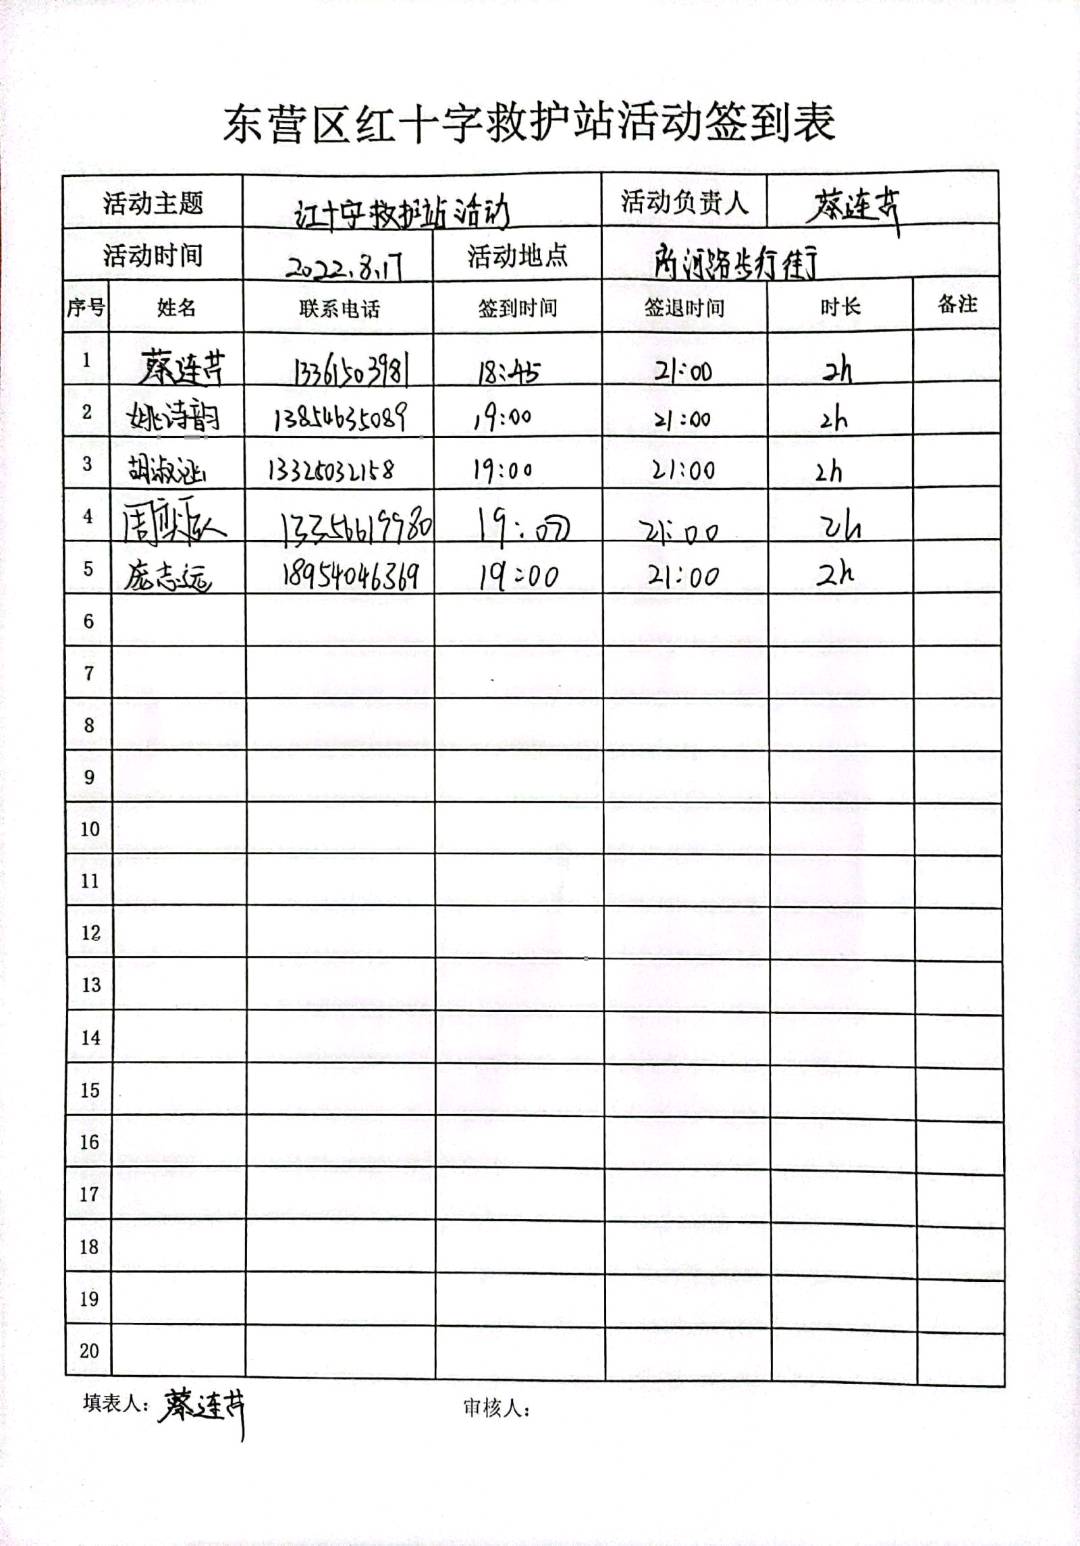 东营区红十字救护站活动签到表
活动主题 红十字救护站活动 活动负责人 蔡连芹
活动时间 2022.8.17 活动地点 两河路步行街
序号 姓名 联系电话 签到时间 签退时间 时长 备注
1 蔡连芹 13361503981 18:45 21:00 2h
2 姚诗韵 13854635089 19:00 21:00 2h
3 胡淑 13325032158 19:00 21:00 2h
4 周 13356619980 19:00 21:00 2h
5 庞志远 18954046369 19:00 21:00 2h
6
7
8
9
10
11
12
13
14
15
16
17
18
19
20
填表人：蔡连芹 审核人：